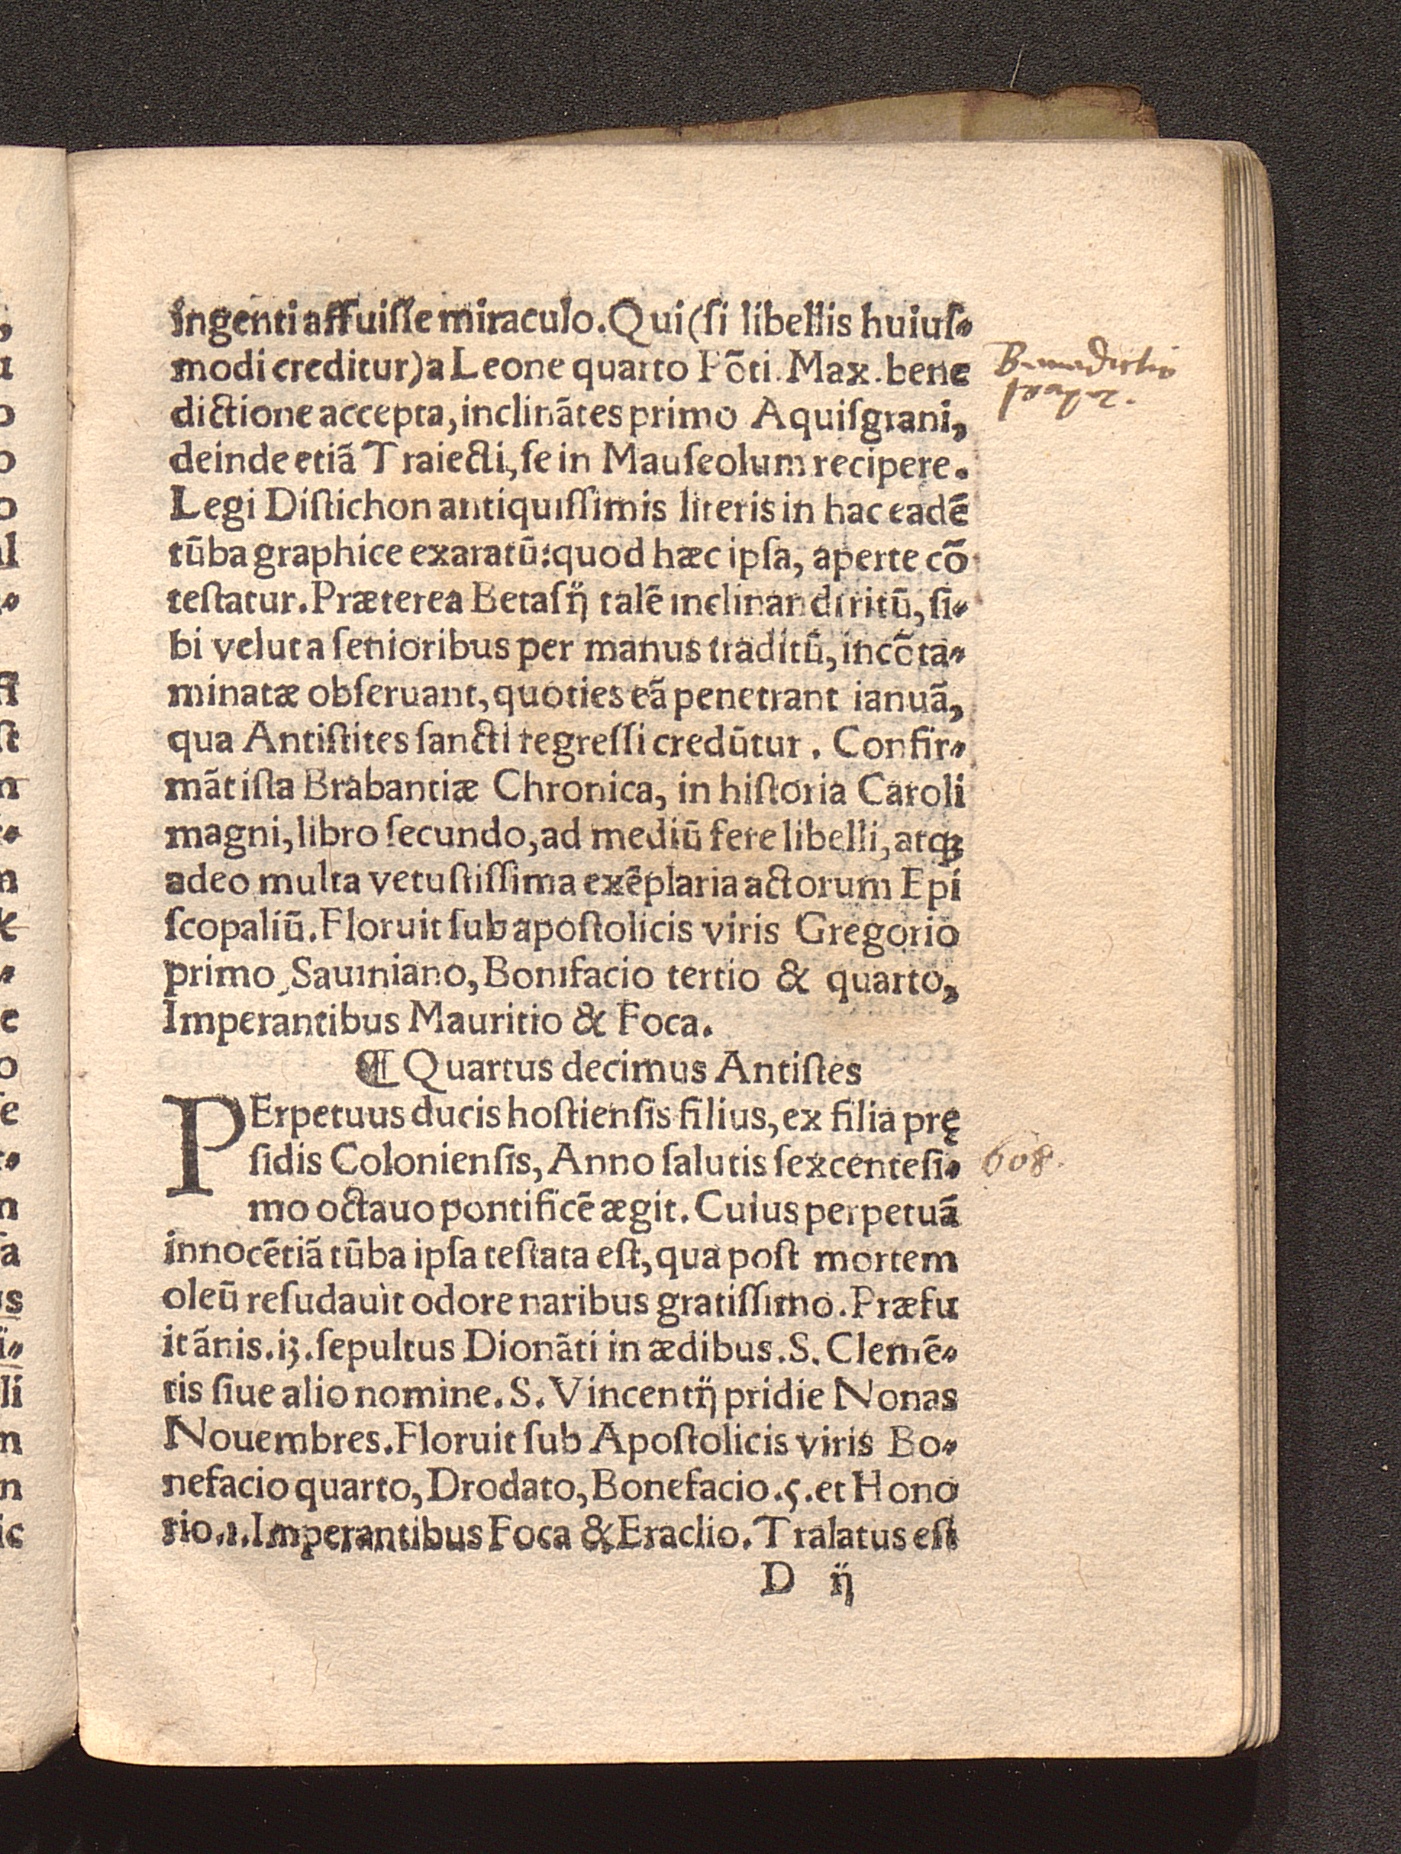 ingenti affuiſſe miraculo. Qui (ſi libellis huiuſ-
modi creditur) a Leone quarto Põti. Max. bene
dictione accepta, inclinãtes primo Aquiſgrani,
deinde etiã Traiecti, ſe in Mauſeolum recipere.
Legi Diſtichon antiquiſſimis literis in hac eadẽ
tũba graphice exaratũ: quod hæc ipſa, aperte cõ
teſtatur. Præterea Betaſij talẽ inclinandi ritũ, ſi-
bi velut a ſenioribus per manus traditũ, incõta-
minatæ obſeruant, quoties eã penetrant ianuã,
qua Antiſtites ſancti regreſſi credũtur. Confir-
mãt iſta Brabantiæ Chronica, in hiſtoria Caroli
magni, libro ſecundo, ad mediũ fere libelli, atqꝫ
adeo multa vetuſtiſſima exẽplaria actorum Epi
ſcopaliũ. Floruit ſub apoſtolicis viris Gregorio
primo, Sauiniano, Bonifacio tertio & quarto,
Imperantibus Mauritio & Foca.
¶ Quartus decimus Antiſtes
PErpetuus ducis hoſtienſis filius, ex filia prę
ſidis Colonienſis, Anno ſalutis ſexcenteſi-
608.
mo octauo pontificẽ ægit. Cuius perpetuã
innocẽtiã tũba ipſa teſtata eſt, qua poſt mortem
oleũ reſudauit odore naribus gratiſſimo. Præfu
it ãnis. iʒ. ſepultus Dionãti in ædibus. S. Clemẽ-
tis ſiue alio nomine. S. Vincentij pridie Nonas
Nouembres. Floruit ſub Apoſtolicis viris Bo-
nefacio quarto, Drodato, Bonefacio. 5. et Hono
rio. 1. Imperantibus Foca & Eraclio. Tralatus eſt
D ij